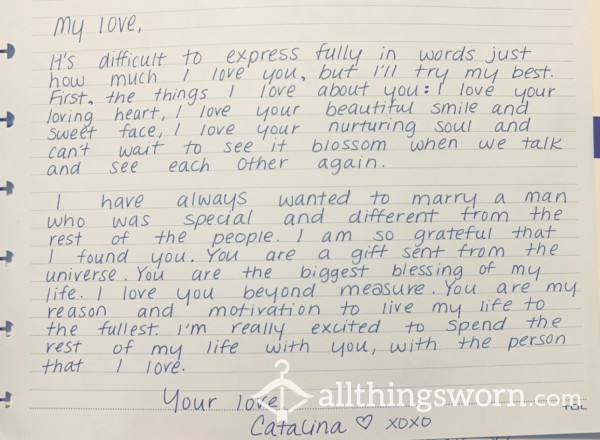 My love,
It's difficult to express fully in words just
how much I love you, but I'll try my best.
First, the things I love about you: I love your
loving heart, I love your beautiful smile and
sweet face, I love your nurturing soul and
can't wait to see it blossom when we talk
and see each other again.
I have always wanted to marry a man
who was special and different from the
rest of the people. I am so grateful that
I found you. You are a gift sent from the
universe. You are the biggest blessing of my
life. I love you beyond measure. You are my
reason and motivation to live my life to
the fullest. I'm really excited to spend the
rest of my life with you, with the person
that I love.
Your love
Catalina ♡ xoxo
allthingsworn.com